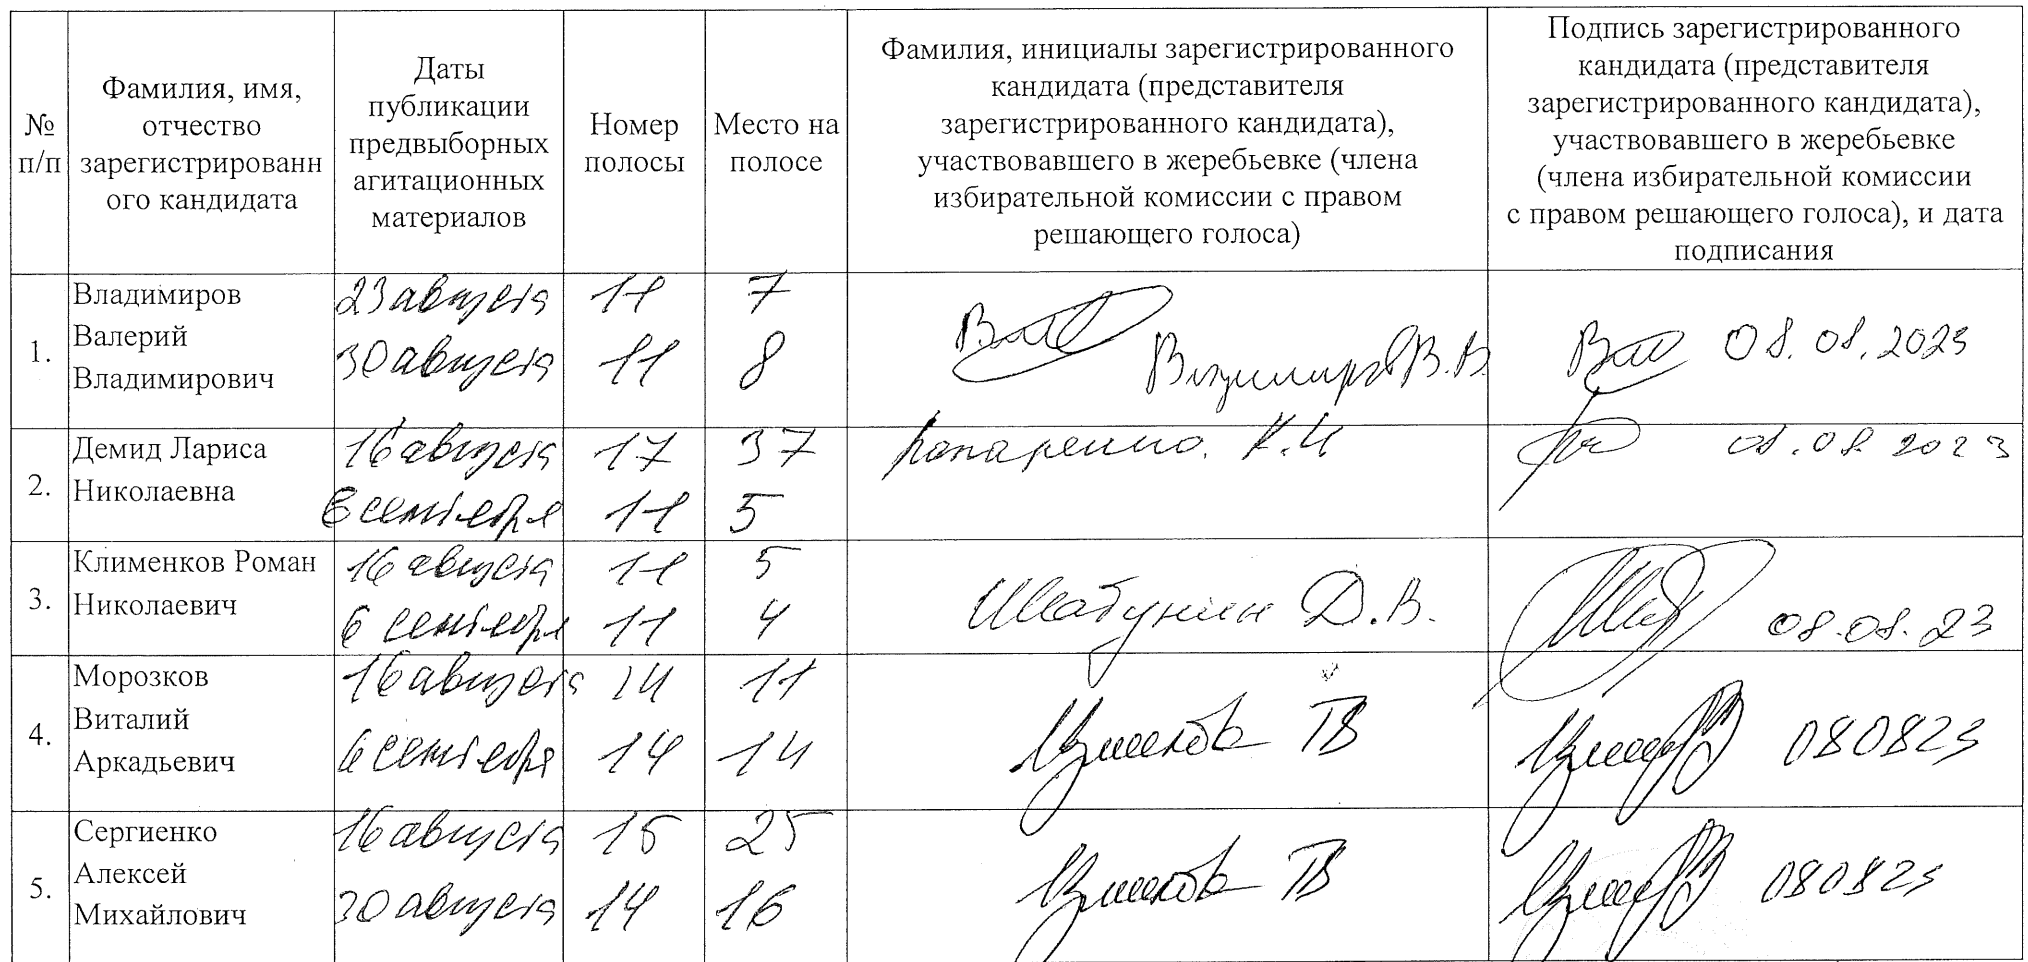 №
п/п
Фамилия, имя,
отчество
зарегистрированн
ого кандидата
Даты
публикации
предвыборных
агитационных
материалов
Номер
полосы
Место на
полосе
Фамилия, инициалы зарегистрированного
кандидата (представителя
зарегистрированного кандидата),
участвовавшего в жеребьевке (члена
избирательной комиссии с правом
решающего голоса)
Подпись зарегистрированного
кандидата (представителя
зарегистрированного кандидата),
участвовавшего в жеребьевке
(члена избирательной комиссии
с правом решающего голоса), и дата
подписания
1.
Владимиров
Валерий
Владимирович
23 августа 11 7
30 августа 11 8
Владимиров В.В.
08.08.2023
2.
Демид Лариса
Николаевна
16 августа 17 37
6 сентября 11 5
К.И
08.08 2023
3.
Клименков Роман
Николаевич
16 августа 11 5
6 сентября 11 4
Шабунин Д.В.
08.08.23
4.
Морозков
Виталий
Аркадьевич
16 августа 14 11
6 сентября 14 14
ТВ
080823
5.
Сергиенко
Алексей
Михайлович
16 августа 15 25
30 августа 14 16
ТВ
080823